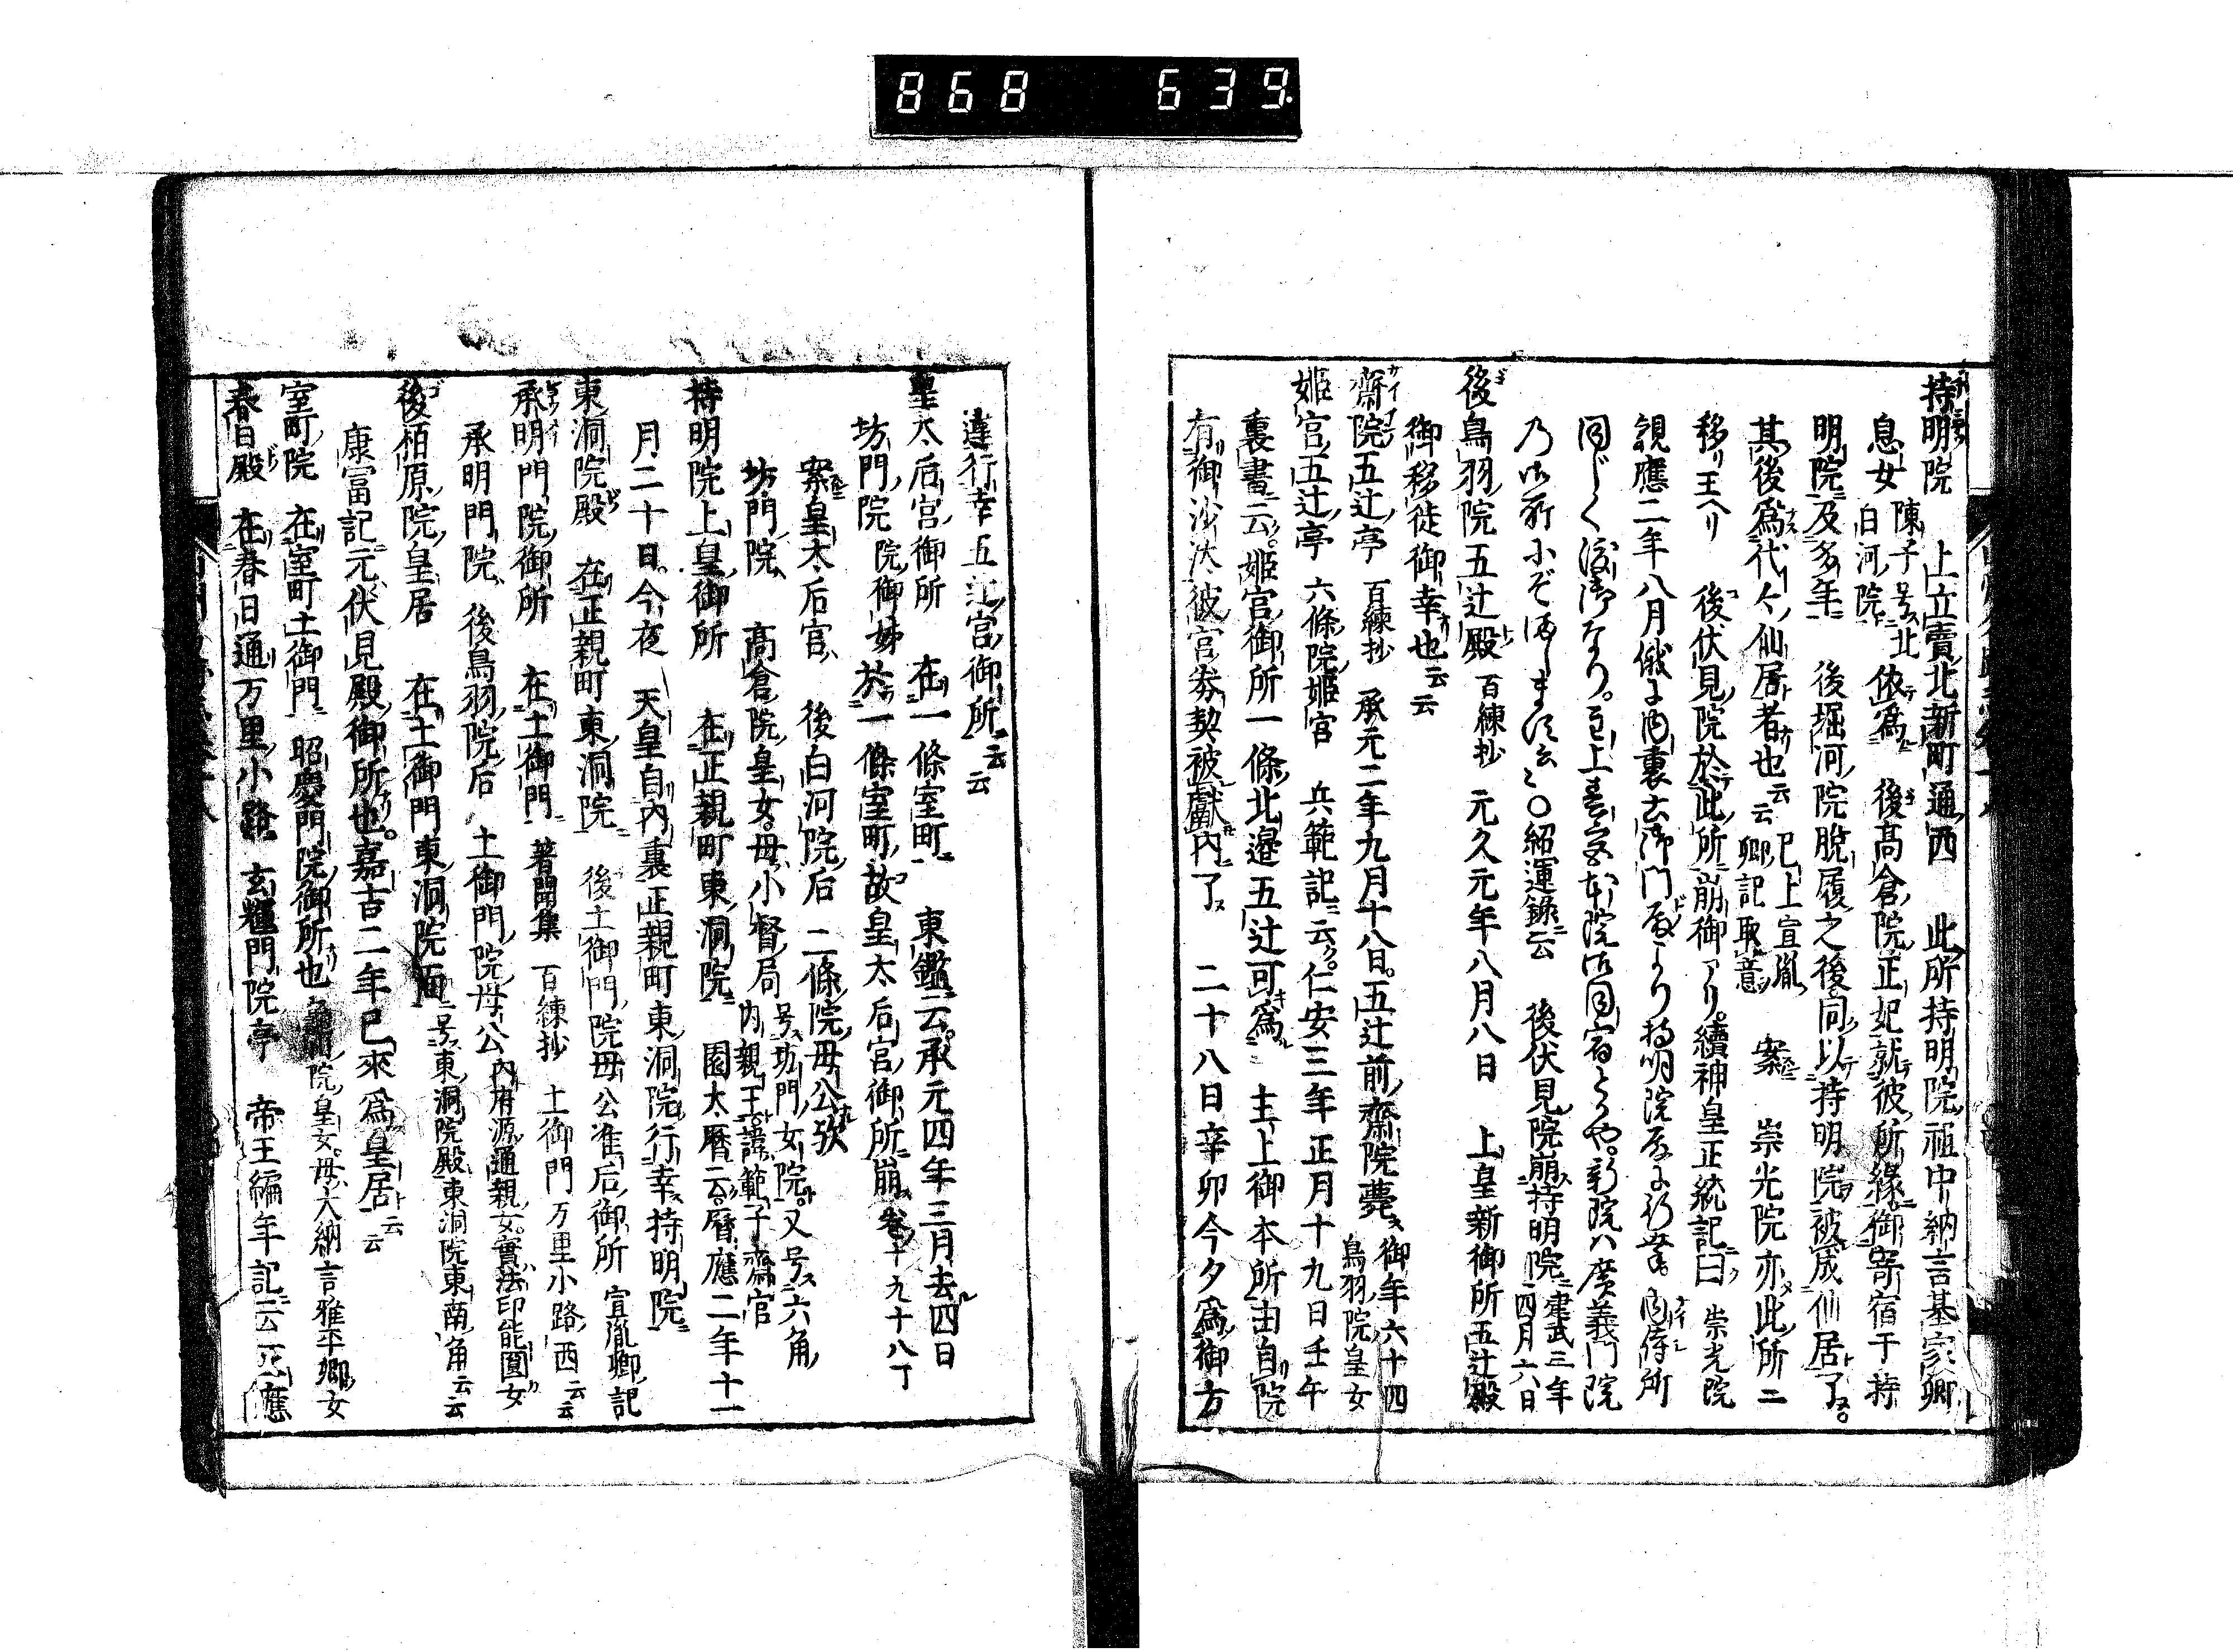 868 639
持明院 上立賣北新町通西 此所持明院祖中納言基家卿
息女 陳子号北白河院 依為 後高倉院正妃就彼所緣御寄宿于持
明院及多年 後堀河院脫履之後同以持明院被成仙居了
其後為代々仙居者也云云 已上宣胤卿記取意 案 崇光院亦此所ニ
移リ王ヘリ 後伏見院於此所崩御アリ續神皇正統記曰 崇光院
觀應二年八月俄
後伏見院崩持明院 建武三年四月六日
後鳥羽院五辻殿 百練抄 元久元年八月八日 上皇新御所五辻殿
御移徙御幸也云云
齋院五辻亭 百練抄 承元二年九月十八日五辻前齋院薨 御年六十四 鳥羽院皇女
姬宮五辻亭 六條院姬宮 兵範記云仁安三年正月十九日壬午
裏書云姬宮御所一條北邉五辻可為 主上御本所由自院
有御沙汰彼宮券契被獻内了 二十八日辛卯今夕為御方
違行幸五辻宮御所云云
皇太后宮御所 在一條室町 東鑑云承元四年三月去四日
坊門院 院御姊 於一條室町故皇太后宮御所崩 卷十九十八丁
案皇太后宮 後白河院后 二條院母公欤
坊門院 高倉院皇女母小督局 号坊門女院又号六角 内親王諱範子齋宮
持明院上皇御所 在正親町東洞院 園太暦云暦應二年十一
月二十日今夜 天皇自内裏正親町東洞院行幸持明院
東洞院殿 在正親町東洞院 後土御門院母公准后御所 宣胤卿記
承明門院御所 在土御門 著聞集 百練抄 土御門万里小路西云云
承明門院 後鳥羽院后 土御門院母公 内府源通親女實法印能圓女
後柏原院皇居 在土御門東洞院面 号東洞院殿東洞院東南角云云
康富記元伏見殿御所也嘉吉二年巳來為皇居云云
室町院 在室町土御門 昭慶門院御所也 龜山院皇女母大納言雅平卿女
春日殿 在春日通万里小路 玄輝門院亭 帝王編年記云正應